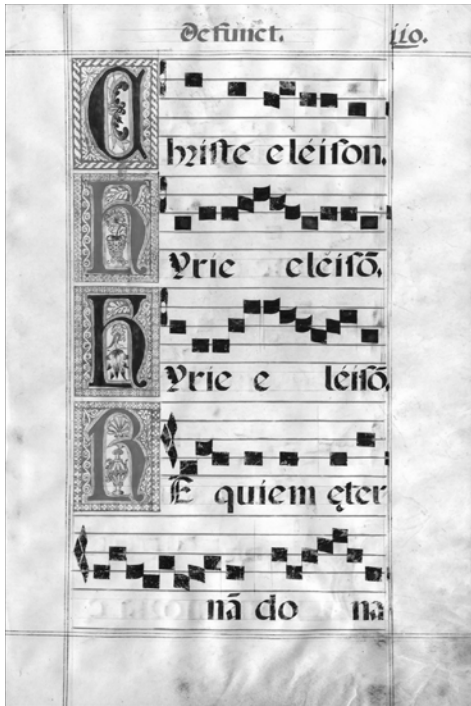 Defunct. 110.
Christe eléison.
Kyrie eléisō.
Kyrie e léisō.
RE quiem ęter
nā do na